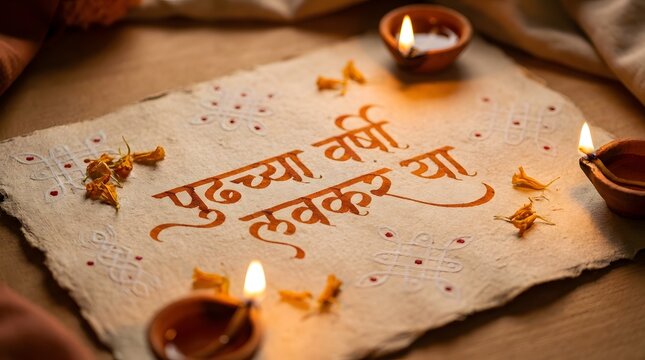 पुढच्या वर्षी
लवकर या